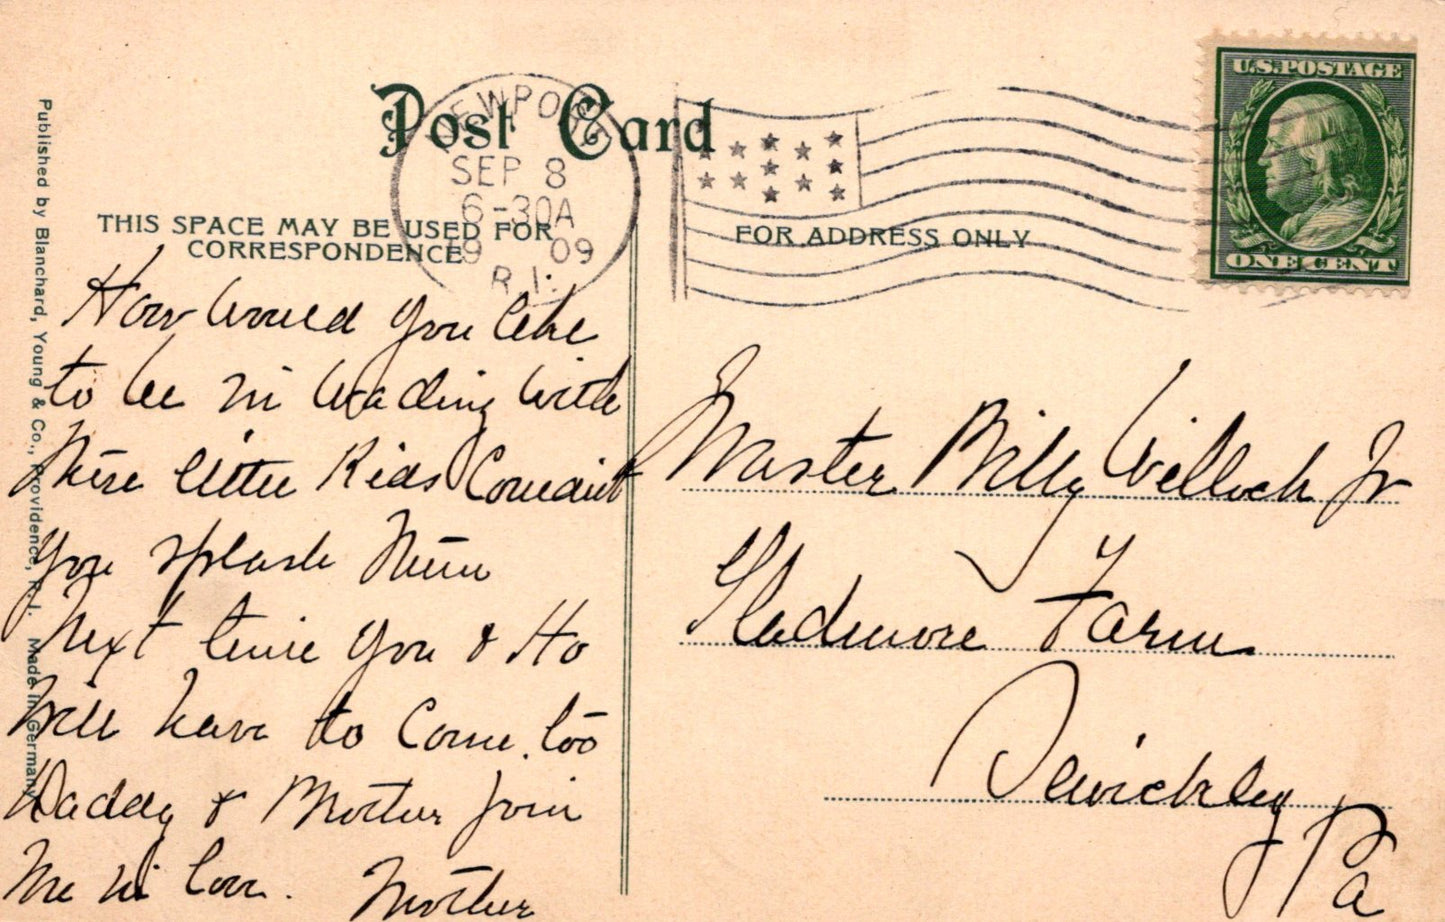 Post Card
NEWPORT
SEP 8
6-30A
19 09
R.I.
U.S. POSTAGE
ONE CENT
THIS SPACE MAY BE USED FOR
CORRESPONDENCE
FOR ADDRESS ONLY
How would you like
to be in wading with
these little Kids Couldn't
you splash them
Next time you & Ho
will have to Come too
Daddy & Mother join
me in love. Mother
Master Billy Willock Jr
Sledmore Farm
Sewickley
Pa
Published by Blanchard, Young & Co., Providence, R.I. Made in Germany